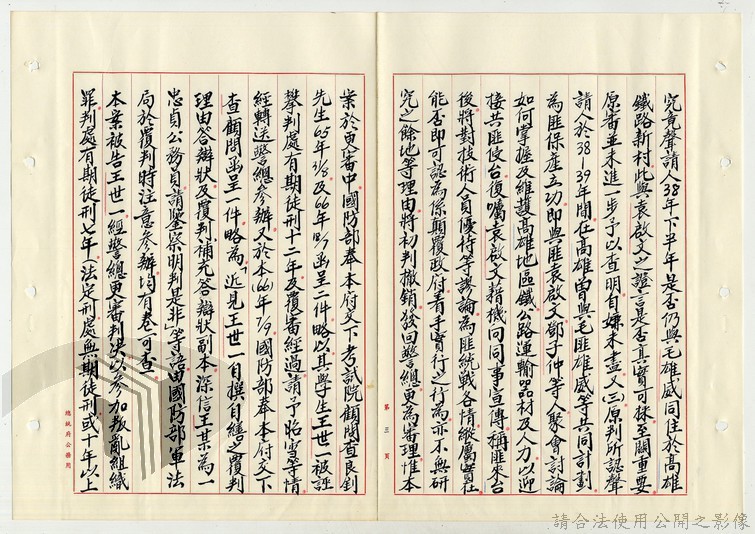 究竟聲請人38年下半年是否仍與毛雄威同住於高雄
鐵路新村此與袁啟文之證言是否真實可採至關重要
原審並未進一步予以查明自嫌未盡又(三)原判所認聲
請人於38-39年間在高雄曾與毛匪雄威等共同計劃
為匪保產立功即與匪袁啟文鄧子仲等人聚會討論
如何掌握及維護高雄地區鐵公路運輸器材及人力以迎
接共匪侵台復囑袁啟文藉機向同事宣傳稱匪來台
後將對技術人員優待等謬論為匪統戰各情縱屬實在
能否即可認為係顛覆政府著手實行之行為亦不無研
究之餘地等理由將初判撤銷發回警總更為審理惟本
第三頁
案於更審中國防部奉本府交下考試院顧問查良釗
先生65年 及66年 函呈二件略以其學生王世一被誣
擊判處有期徒刑十二年及覆審經過請予昭雪等情
經轉送警總參辦又於本(66)年 國防部奉本府交下
查顧問函呈一件略為「近見王世一自撰自繕之覆判
理由答辯狀及覆判補充答辯狀副本深信王某為一
忠貞公務員請鑒察明判是非」等語由國防部軍法
局於覆判時注意參辦均有卷可查
本案被告王世一經警總更審判決以參加叛亂組織
罪判處有期徒刑七年(法定刑處無期徒刑或十年以上
總統府公務用
請合法使用公開之影像